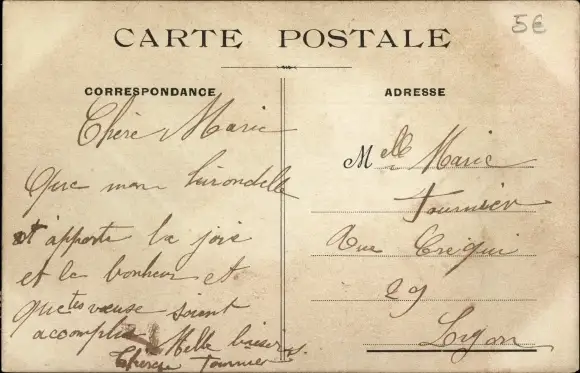 5€
CARTE POSTALE
CORRESPONDANCE
Chère Marie
Que mon hirondelle
t'apporte la joie
et le bonheur et
que tes vœuse soient
acomplis Mille baisers
Therese Tournier
ADRESSE
Melle Marie
Tournier
Rue Créqui
29
Lyon